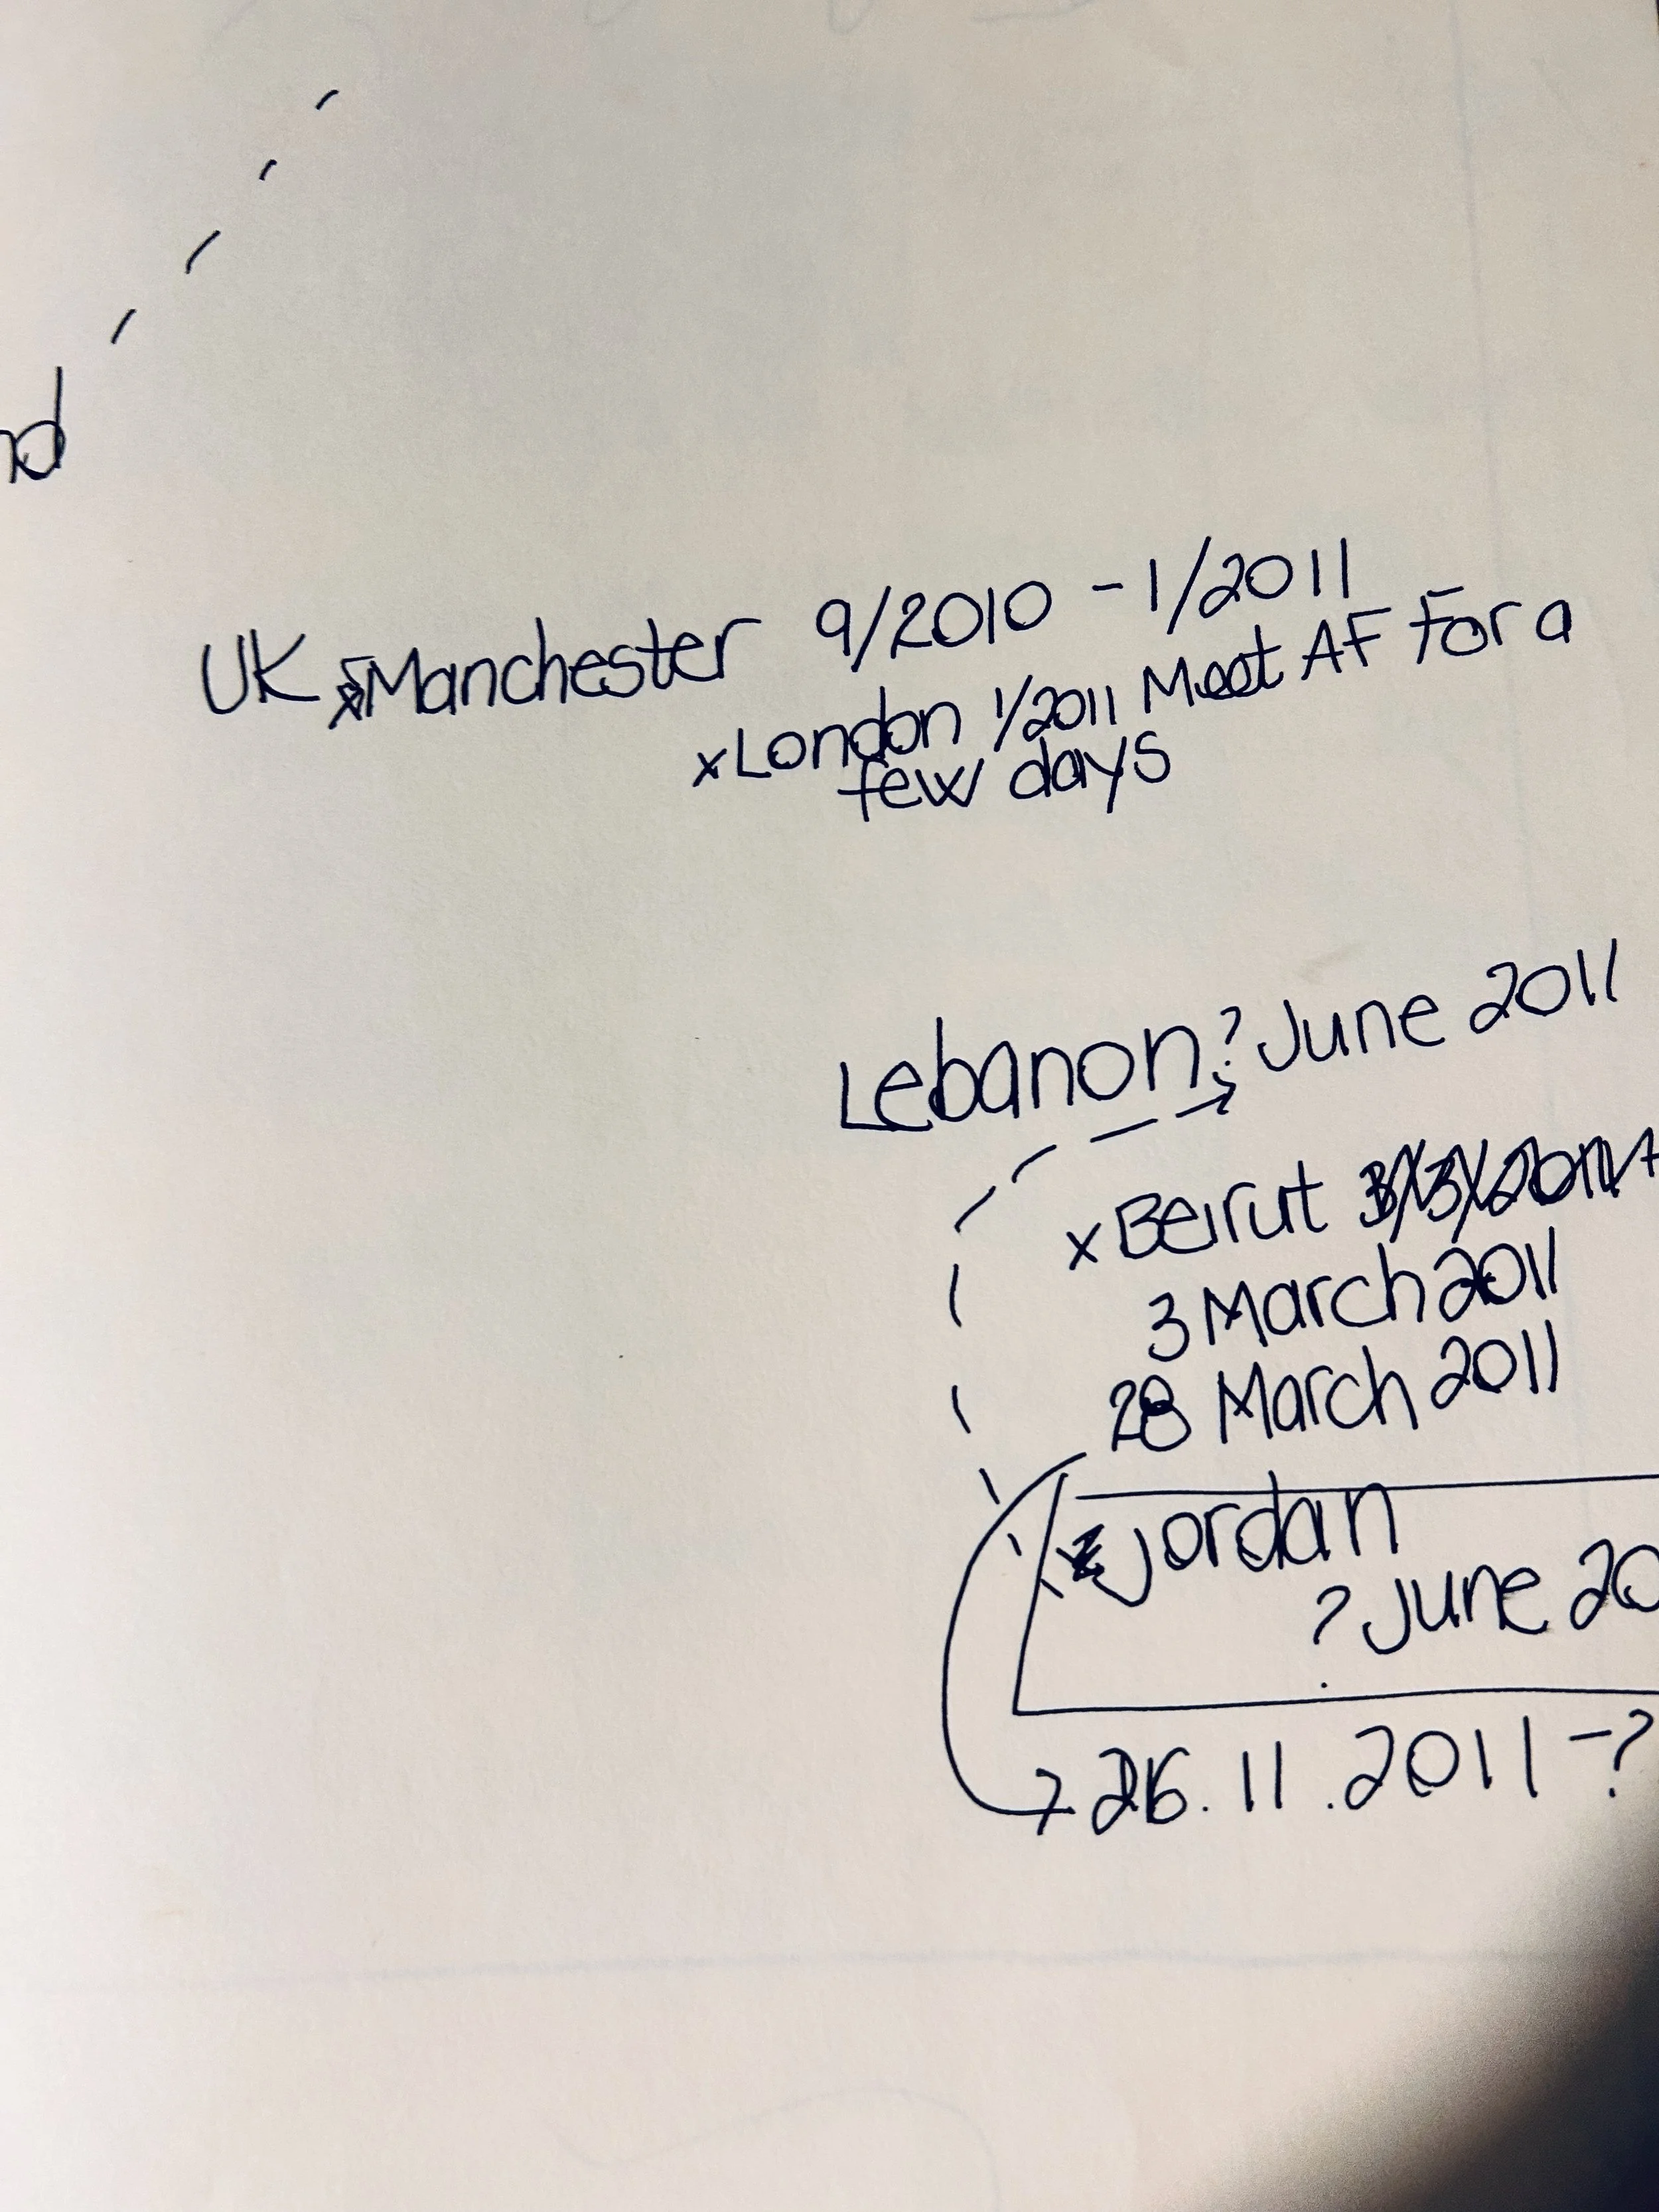 nd
UK Manchester 9/2010 - 1/2011
x London 1/2011 Meet AF For a
few days
Lebanon ? June 2011
x Beirut
3 March 2011
28 March 2011
Jordan
? June 20
26.11.2011 - ?